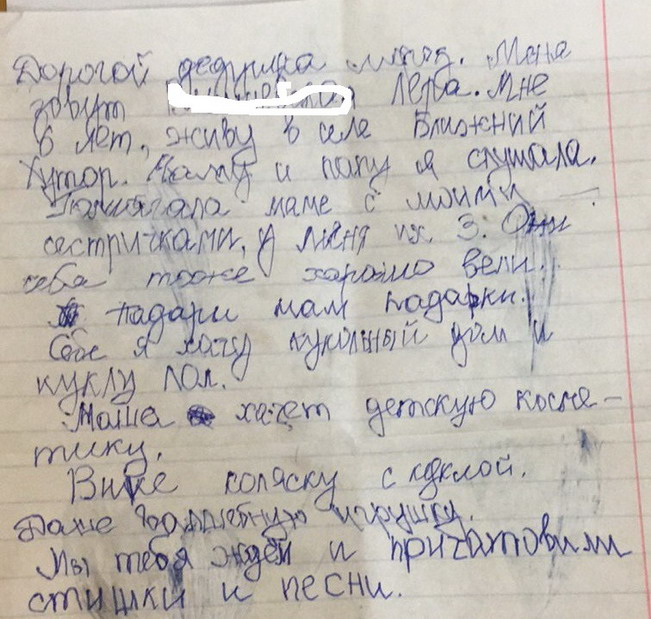 Дорогой дедушка мароз. Меня
зовут Лера. Мне
6 лет, живу в селе Ближний
Хутор. Маму и папу я слушала.
Памагала маме с моими
сестричками, у меня их 3. Они
себа тоже харошо вели.
падари нам падарки.
Себе я хачу кукольный дом и
куклу Лол.
Маша хачет детскую косме-
тику.
Вике коляску с куклой.
Даше волшебную игрушку.
Мы тебя ждем и пригатовили
стишки и песни.